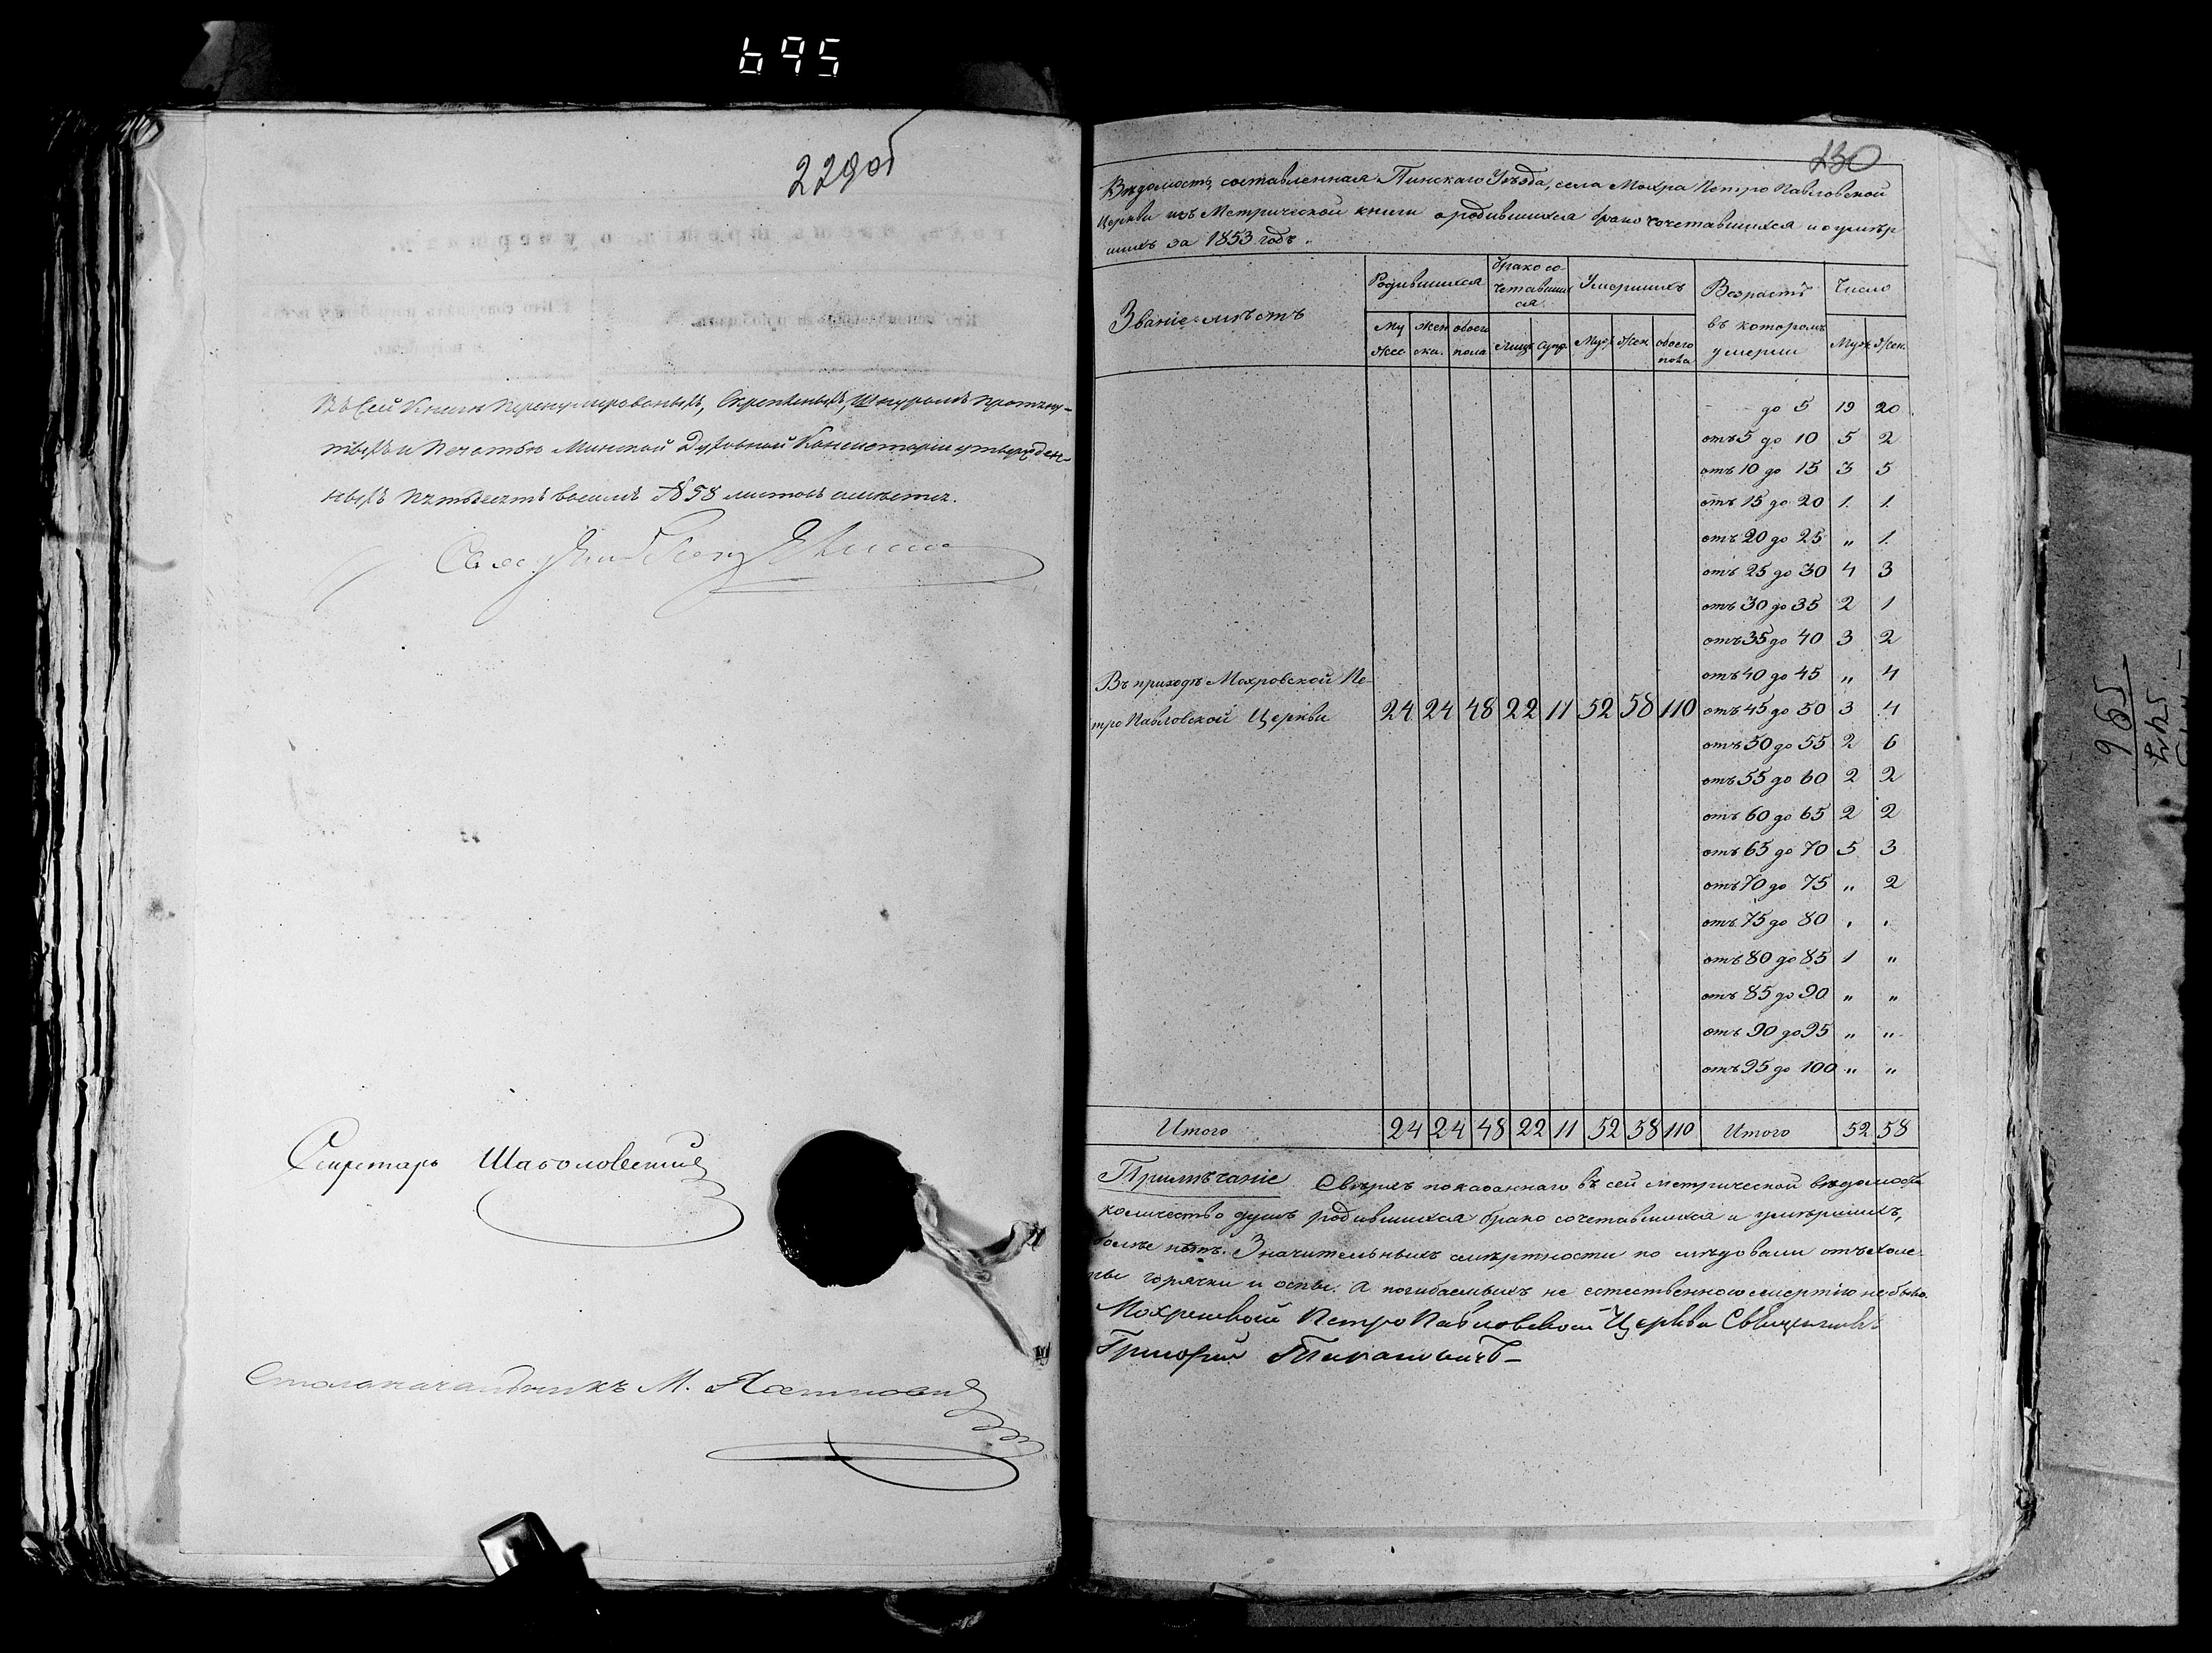 695
229об
Въ сей Книгѣ Перенумерованныхъ, Скрепленыхъ, Шнуромъ протяну-
тыхъ и Печатью Минской Духовной Консисторіи утвержден-
ныхъ пятьдесятъ восемь № 58 листовъ имѣется.
Секретарь Шаболовскій
Столоначальникъ М.
230
Вѣдомость, составленная Пинскаго Уѣзда, села Мохра Петро Павловской
Церкви изъ Метрической книги о родившихся брако сочетавшихся и о умѣр
шихъ за 1853 годъ.
Званіе мѣстъ
Родившихся
брако со-
четавших
ся
Умершихъ
Возрастъ
въ которомъ
умерли
Число
Му
жес.
жен
ска.
обоего
пола
лицъ
супр.
Муж.
Жен.
обоего
пола
Муж.
Жен.
до 5 19 20
отъ 5 до 10 5 2
отъ 10 до 15 3 5
отъ 15 до 20 1. 1.
отъ 20 до 25 „ 1.
отъ 25 до 30 4 3
отъ 30 до 35 2 1
отъ 35 до 40 3 2
отъ 40 до 45 „ 4
Въ приходѣ Мохровской Пе-
тро Павловской Церкви 24 24 48 22 11 52 58 110 отъ 45 до 50 3 4
отъ 50 до 55 2 6
отъ 55 до 60 2 2
отъ 60 до 65 2 2
отъ 65 до 70 5 3
отъ 70 до 75 „ 2
отъ 75 до 80 . .
отъ 80 до 85 1 „
отъ 85 до 90 „ „
отъ 90 до 95 „ „
отъ 95 до 100 „ „
Итого 24 24 48 22 11 52 58 110 Итого 52 58
Примѣчаніе Сверхъ показаннаго въ сей метрической вѣдомости
количество душъ родившихся брако сочетавшихся и умѣршихъ,
болѣе нѣтъ. Значительныхъ смѣртности по слѣдовали отъ холе-
ры горячки и оспы. А погибаемыхъ не естественною смертію не было.
Мохровской Петро Павловской Церкви Священникъ
Григорій
965